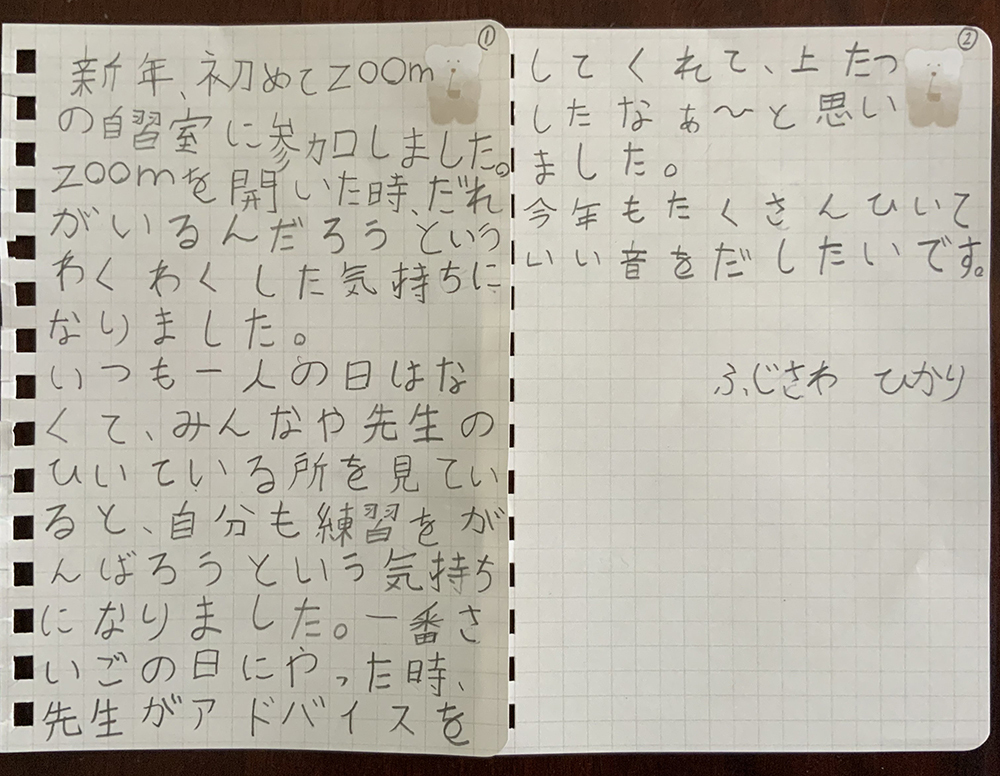 ①
新年、初めてzoom
の自習室に参加しました。
zoomを開いた時、だれ
がいるんだろうという
わくわくした気持ちに
なりました。
いつも一人の日はな
くて、みんなや先生の
ひいている所を見てい
ると、自分も練習をが
んばろうという気持ち
になりました。一番さ
いごの日にやった時、
先生がアドバイスを
②
してくれて、上たつ
したなぁ〜と思い
ました。
今年もたくさんひいて
いい音をだしたいです。
ふじさわ ひかり